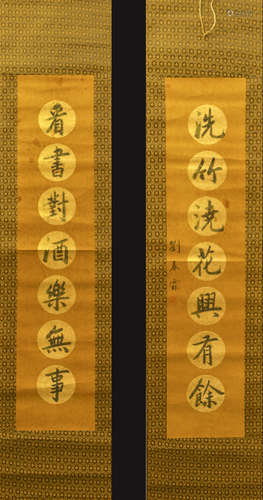 洗竹澆花興有餘
劉春霖
看書對酒樂無事